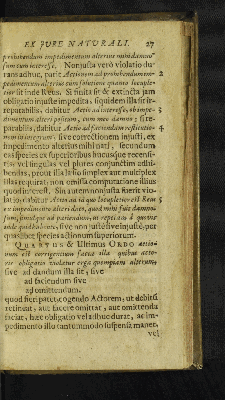 EX JURE NATURALI. 27
prohibendum impedimentum alterius mihi damno
sum cum interesse. Non justa verò violatio du-
rans adhuc, parit Actionem ad prohibendum im- 2
pedimentum alterius cum solutione quanto locuple-
tior sit inde Reus. Si fuit & extincta jam
obligatio injuste impedita, siquidem illa sit irre-
parabilis, dabitur Actio ad interesse, ob impe- 3
dimentum alteri positum, cum meo damno; si re-
parabilis, dabitur Actio ad faciendam restitutio- 4
nem in integrum sive correctionem injusti, ex
impedimento alterius mihi nati, secundum
eas species ex superioribus hucusque recensi-
tis vel singulas vel plures conjunctim adhi-
bendas, prout illa læsio simplex aut multiplex
illas requirat; non omissa computatione illius
quod interest. Sin autem non justa fuerit vio-
latio, dabitur Actio ad id quo locupletior est Reus
ex impedimento alteri dato, quod mihi fuit damno-
sum
quibus species actionum superiorum.
QUARTUS & Ultimus ORDO actio-
num est corrigentium facta illa quibus acto-
ris obligatio violatur erga quempiam alterum,
sive ad dandum illa sit, sive
ad faciendum sive
ad omittendum.
quod fieri patet, cogendo Actorem, ut debitū
retineat, aut facere omittat, aut omittenda
faciat, hæc obligatio vel adhuc durat, ac im-
pedimento illu tantummodo suspensa manet,
vel